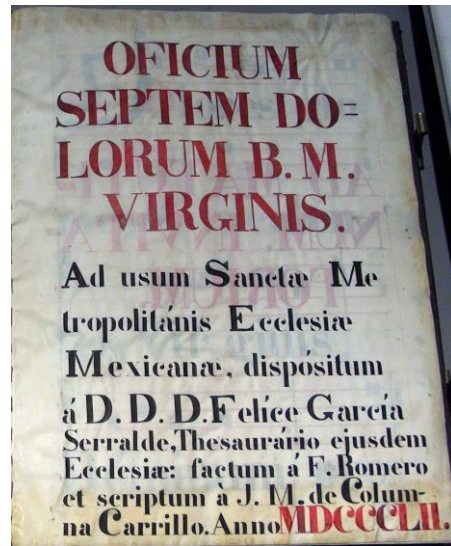 OFICIUM
SEPTEM DO=
LORUM B. M.
VIRGINIS.
Ad usum Sanctæ Me
tropolitánis Ecclesiæ
Mexicanæ, dispósitum
á D. D. D. Felíce García
Serralde, Thesaurário ejusdem
Ecclesiæ: factum á F. Romero
et scriptum à J. M. de Colum-
na Carrillo. Anno MDCCCLII.